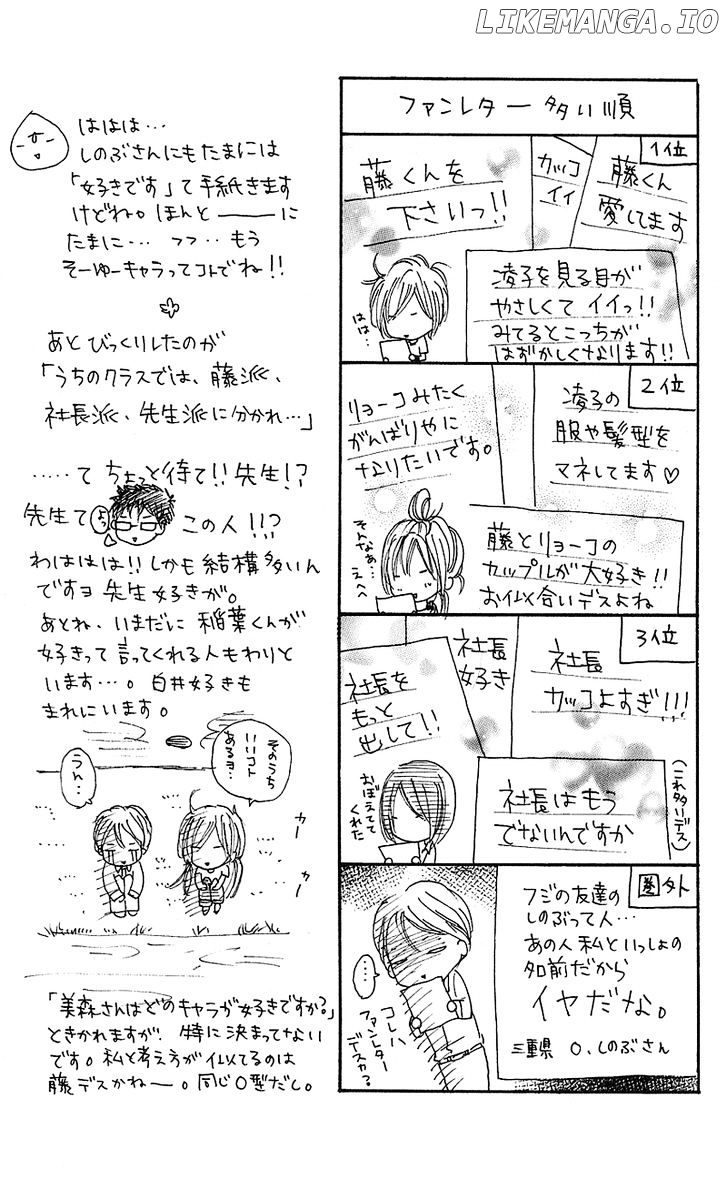 LIKEMANGA.IO
ファンレター多い順
1位
藤くん
愛してます
カッコ
イイ
藤くんを
下さいっ!!
凌子を見る目が
やさしくてイイっ!!
みてるとこっちが
はずかしくなります!!
はは…
2位
凌子の
服や髪型を
マネしてます♡
リョーコみたく
がんばりやに
なりたいです。
藤とリョーコの
カップルが大好き!!
お似合いデスよね
そんなぁ…
えへへ
3位
社長
カッコよすぎ!!!
社長
好き
社長を
もっと
出して!!
社長はもう
でないんですか
(これ多いデス)
おぼえてて
くれた
圏外
フジの友達の
しのぶって人…
あの人私といっしょの
名前だから
イヤだな。
三重県 O.しのぶさん
…
コレハ
ファンレター
デスカ?
ははは…
しのぶさんにもたまには
「好きです」て手紙きます
けどね。ほんとーーーに
たまに… フフ‥もう
そーゆーキャラってコトでね!!
あとびっくりしたのが
「うちのクラスでは、藤派、
社長派、先生派に分かれ…」
……て ちょっと待て!! 先生!?
先生て
よっ
この人!!?
わははは!! しかも結構多いん
ですヨ 先生好きが。
あとね、いまだに 稲葉くんが
好きって言ってくれる人もわりと
います…。白井好きも
まれにいます。
そのうち
いいコト
あるヨ…
うん…
カー
カー
「美森さんはどのキャラが好きですか?」
ときかれますが、特に決まってない
です。私と考え方が似てるのは
藤デスかねー。同じO型だし。